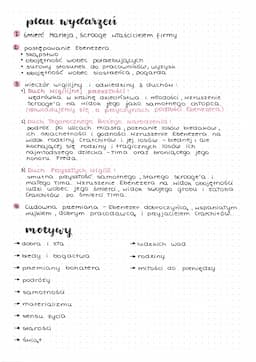 plan wydarzeń
1 śmierć Marleya, Scrooge właścicielem firmy
2 postępowanie Ebenezera
• skąpstwo
• obojętność wobec potrzebujących
• surowy stosunek do pracowników, wyzysk
• obojętność wobec siostrzeńca, pogarda
3 wieczór wigilijny i odwiedziny 3 duchów:
a) Duch Wigilijnej Przeszłości:
wędrówka w krainę dzieciństwa i młodości, wzruszenie
Scrooge'a na widok jego jako samotnego chłopca
b) Duch Tegorocznego Bożego Narodzenia:
podróż po ulicach miasta, poznanie losów biedaków,
ich szlachetności i godności wzruszenie Ebenezera na
widok rodziny Cratchitów i jej losów - biednej, ale
kochającej się rodziny i tragicznych losów ich
najmłodszego dziecka - Tima oraz broniącego jego
honoru Freda.
c) Duch Przyszłych Wigilii:
smutna przyszłość samotnego, starego Scrooge'a i
małego Tima. Wzruszenie Ebenezera na widok obojętności
ludzi wobec jego śmierci, widok swojego grobu i żałoba
Cratchitów po śmierci Tima.
4 Cudowna przemiana - Ebenezer dobroczyńcą, wspaniałym
wujkiem, dobrym pracodawcą i przyjacielem Cratchitów.
motywy
→ dobra i zła
→ biedy i bogactwa
→ przemiany bohatera
→ podróży
→ samotności
→ materializmu
→ sensu życia
→ starości
→ świąt
→ ludzkich wad
→ rodziny
→ miłości do pieniędzy